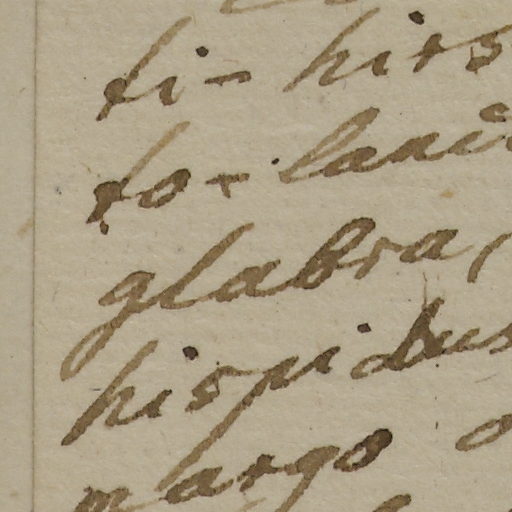 ti- hirs
to- lanc
glabra,
hispidus
margo